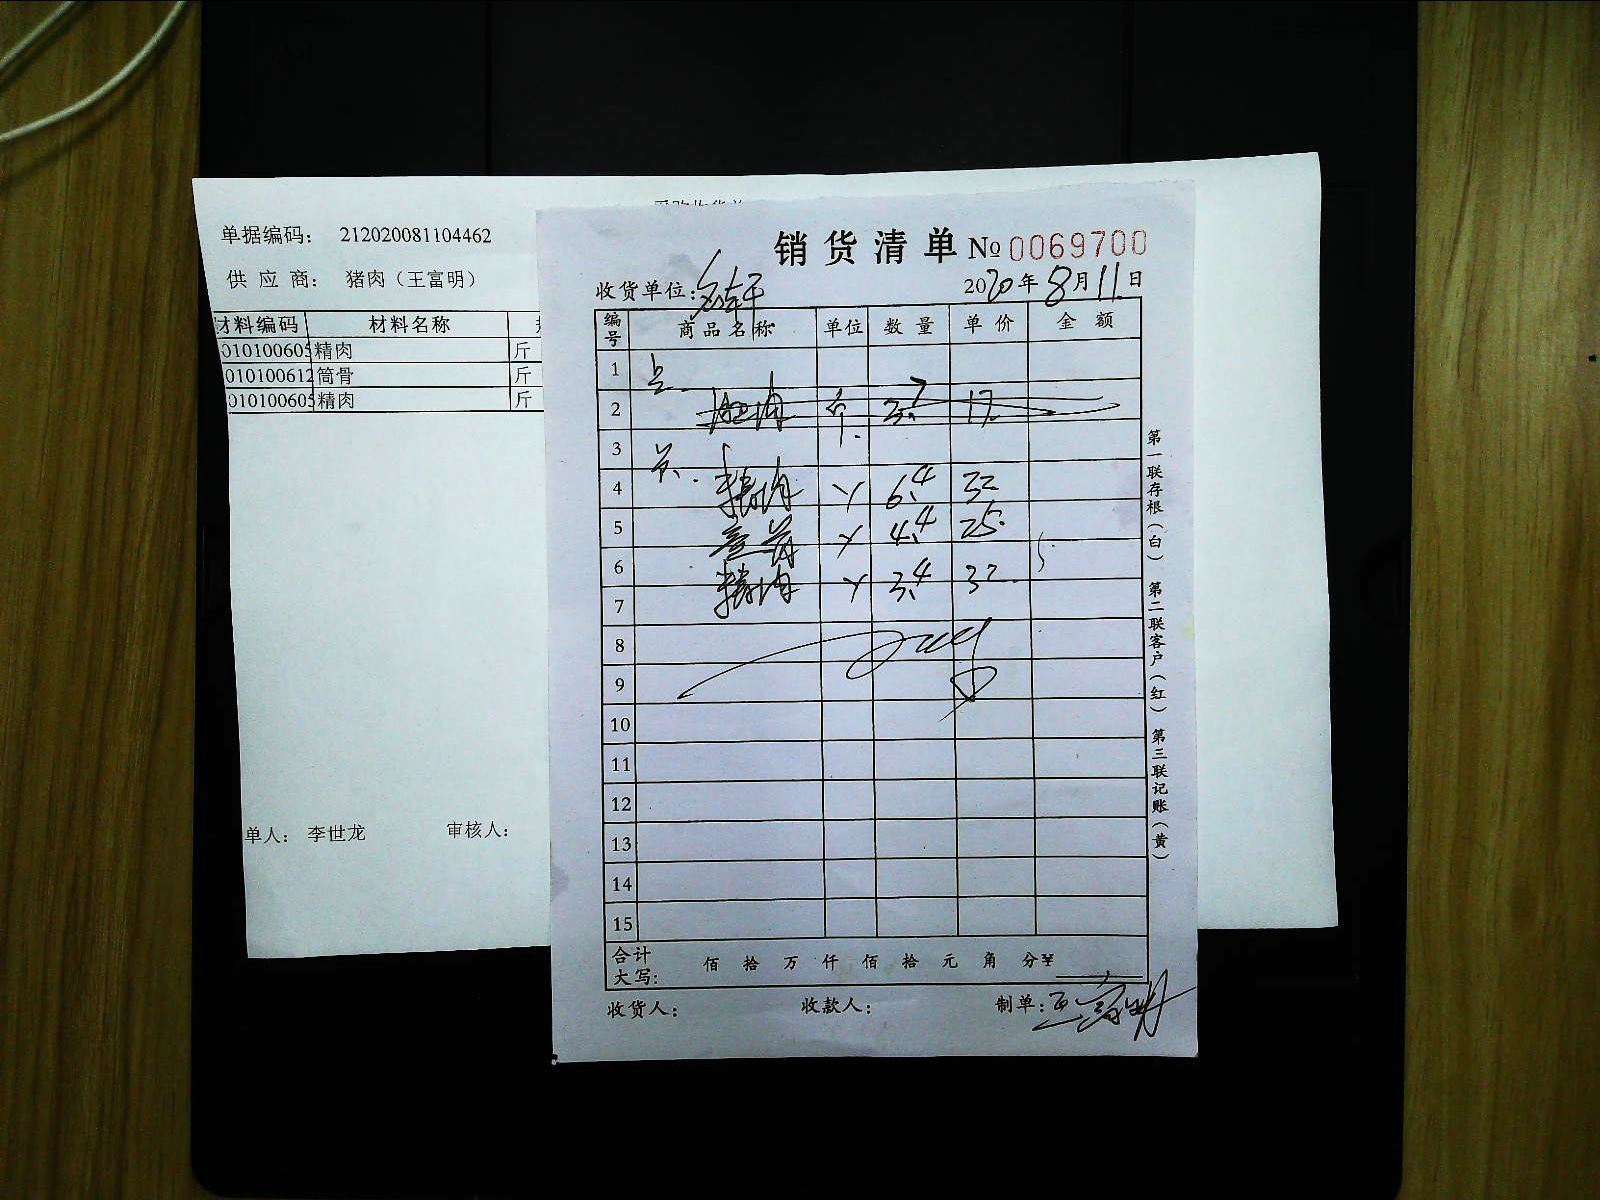 单据编码： 212020081104462
供 应 商： 猪肉（王富明）
材料编码 材料名称
010100605 精肉 斤
010100612 筒骨 斤
010100605 精肉 斤
单人： 李世龙 审核人：
销货清单 № 0069700
收货单位：
2020年8月11日
编号 商品名称 单位 数量 单价 金额
1
2 17
3
4 精肉 6.4 32
5 4.4 25
6 精肉 3.4 32
7
8
9
10
11
12
13
14
15
合计大写： 佰 拾 万 仟 佰 拾 元 角 分 ¥
收货人： 收款人： 制单：王富明
第一联存根（白） 第二联客户（红） 第三联记账（黄）